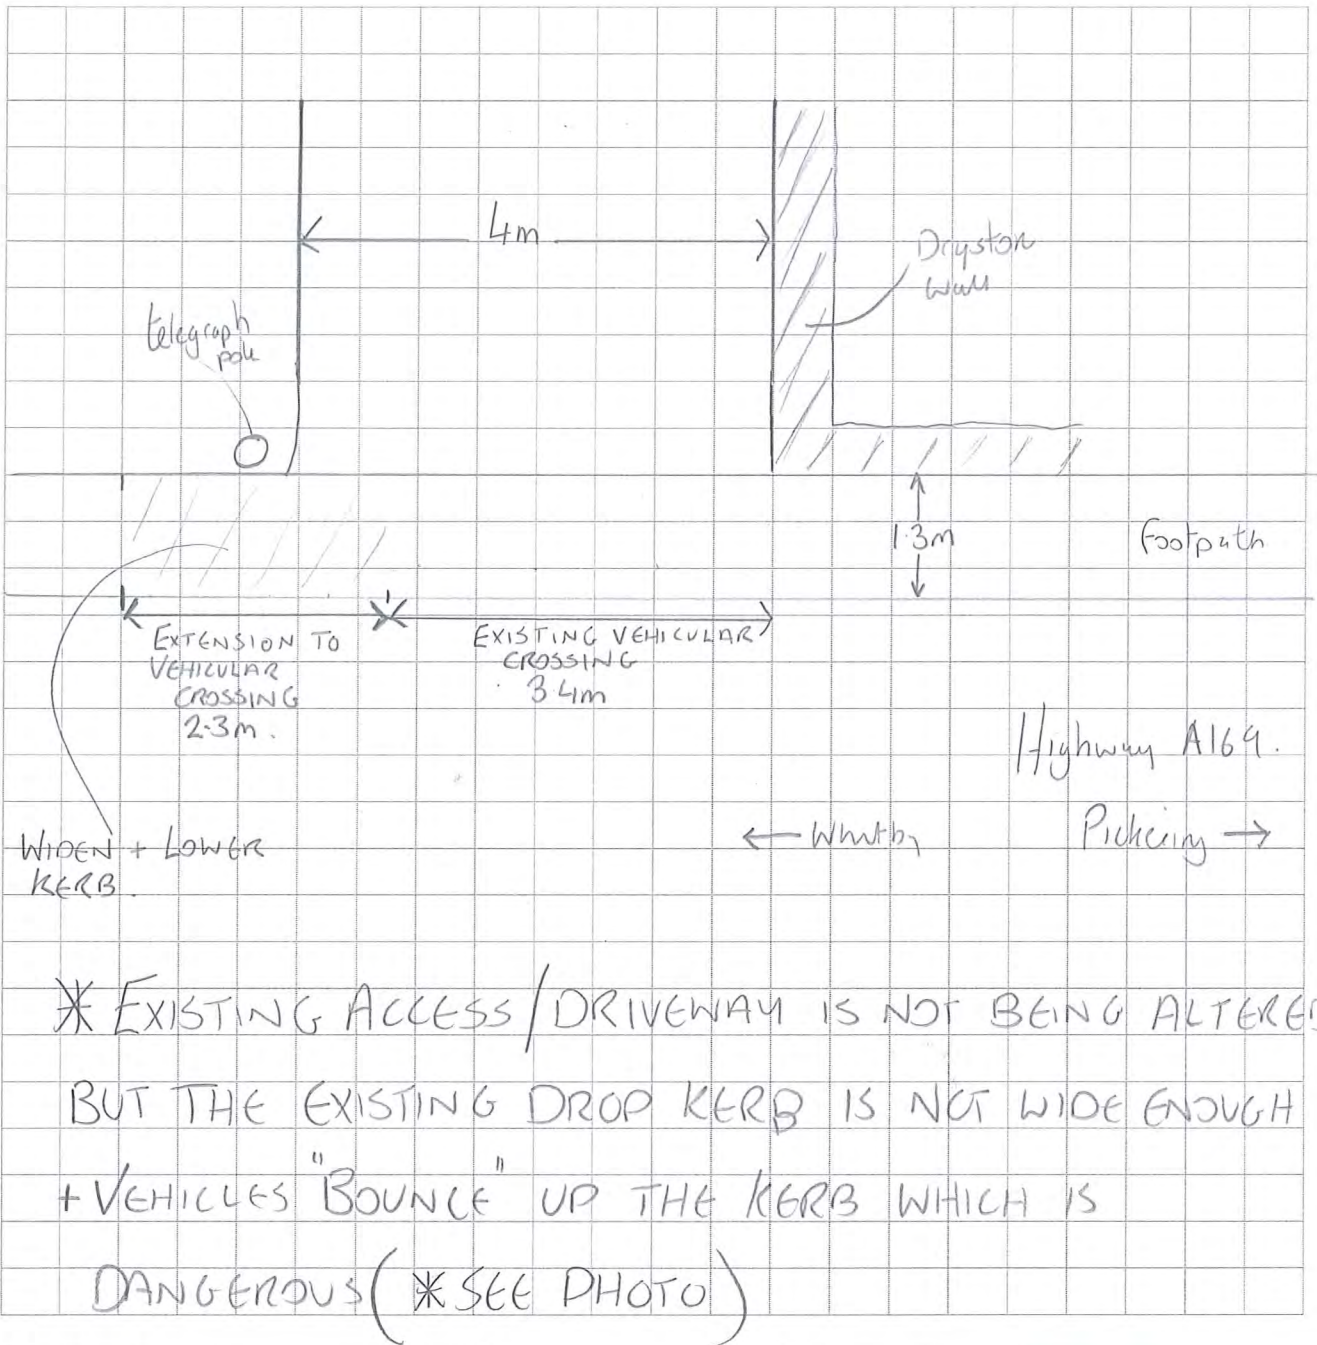 4m
Dryston
Wall
telegraph
pole
1.3m
Footpath
EXTENSION TO
VEHICULAR
CROSSING
2.3m.
EXISTING VEHICULAR
CROSSING
3.4m
Highway A169.
WIDEN + LOWER
KERB.
← Whitby
Pickering →
* EXISTING ACCESS/DRIVEWAY IS NOT BEING ALTERED
BUT THE EXISTING DROP KERB IS NOT WIDE ENOUGH
+ VEHICLES "BOUNCE" UP THE KERB WHICH IS
DANGEROUS (* SEE PHOTO)